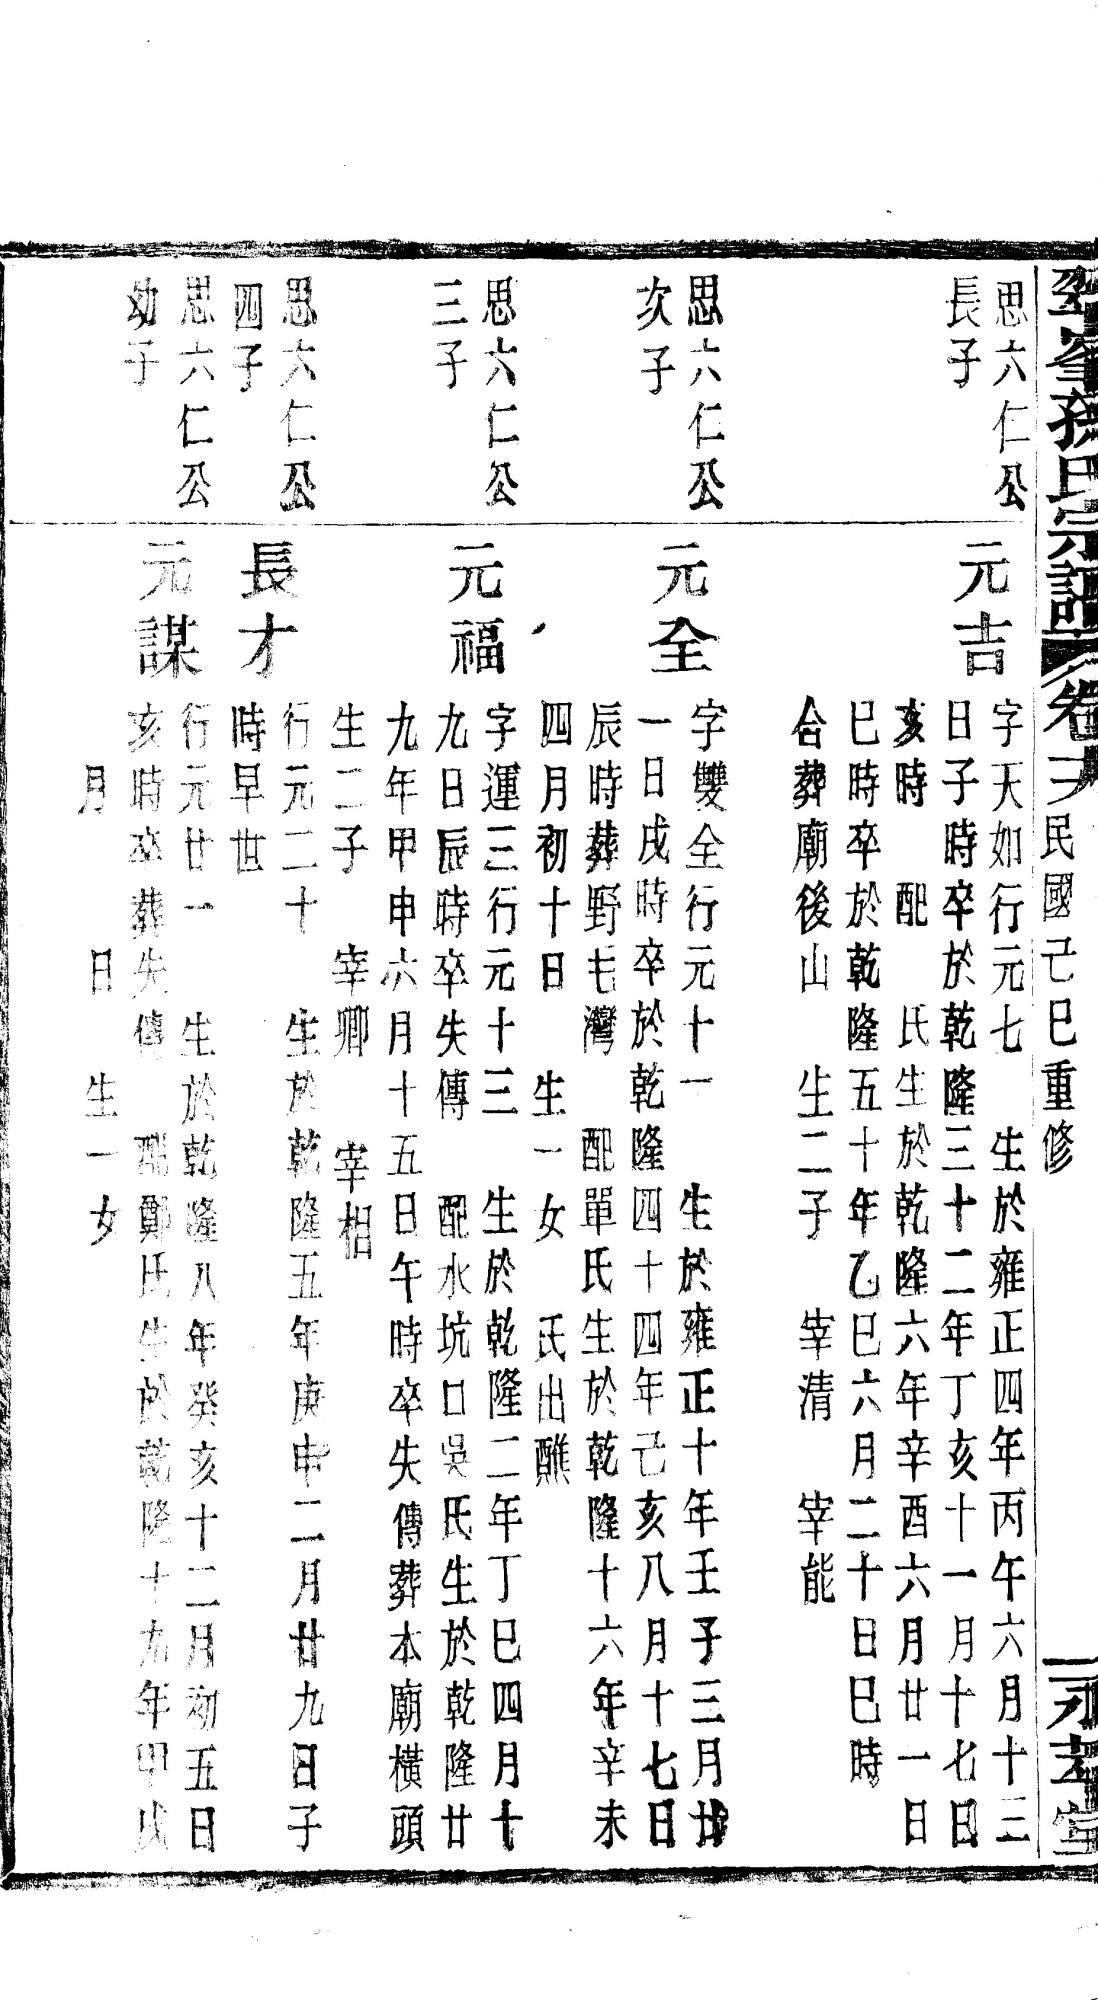 峯孫氏宗譜 卷 民國己巳重修 一 永孝堂
思六仁公
長子
元吉
字天如行元七 生於雍正四年丙午六月十三
日子時卒於乾隆三十二年丁亥十一月十七日
亥時 配 氏生於乾隆六年辛酉六月廿一日
巳時卒於乾隆五十年乙巳六月二十日巳時
合葬廟後山 生二子 宰清 宰能
思六仁公
次子
元全
字雙全行元十一 生於雍正十年壬子三月廿
一日戌時卒於乾隆四十四年己亥八月十七日
辰時葬野毛灣 配單氏生於乾隆十六年辛未
四月初十日 生一女 氏出醮
思六仁公
三子
元福
字運三行元十三 生於乾隆二年丁巳四月十
九日辰時卒失傳 配水坑口吳氏生於乾隆廿
九年甲申六月十五日午時卒失傳葬本廟橫頭
生二子 宰卿 宰相
思六仁公
四子
長才
行元二十 生於乾隆五年庚申二月廿九日子
時早世
思六仁公
幼子
元謀
行元廿一 生於乾隆八年癸亥十二月初五日
亥時卒葬失傳 配鄭氏生於乾隆十九年甲戌
月 日 生一女